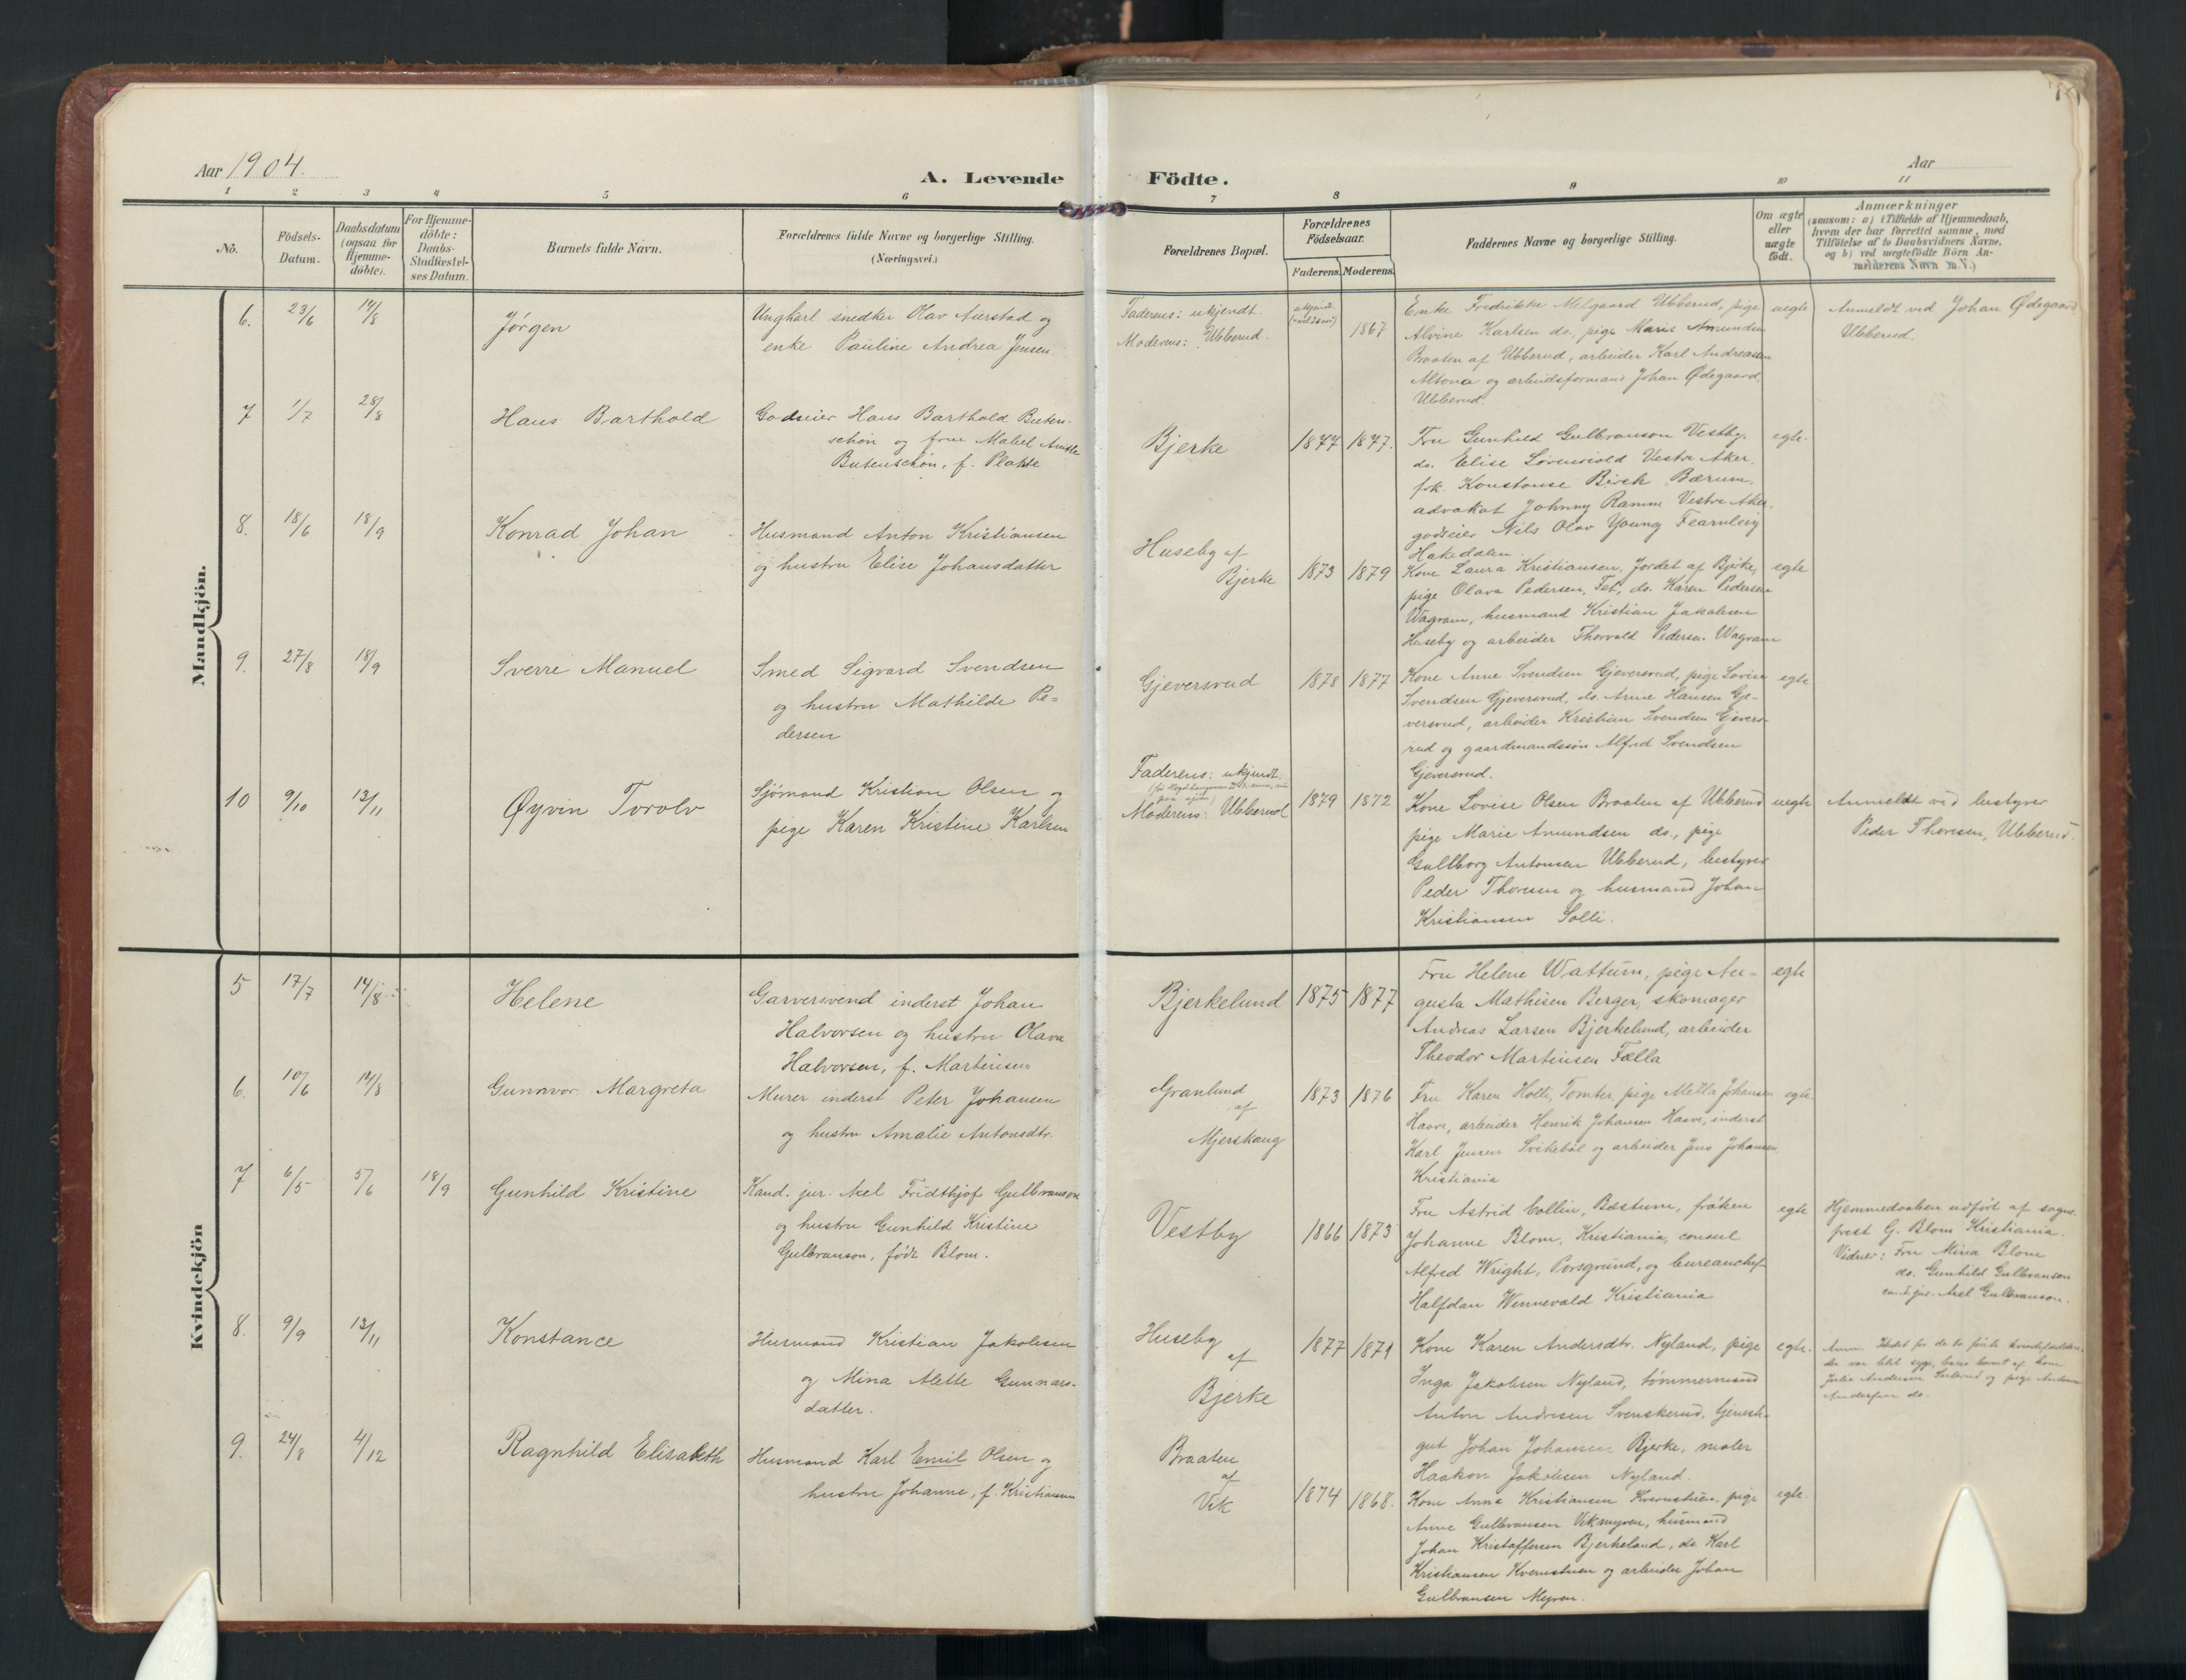 Aar 1904.
A. Levende Födte.
Aar
1 2 3 4 5 6 7 8 9 10 11
No.
Födsels-
Datum.
Daabsdatum
(ogsaa for
Hjemme-
döbte).
For Hjemme-
döbte:
Daabs-
Stadfæstel-
ses Datum.
Barnets fulde Navn.
Forældrenes fulde Navne og borgerlige Stilling.
(Næringsvei.)
Forældrenes Bopæl.
Forældrenes
Födselsaar.
Faderens.
Moderens.
Faddernes Navne og borgerlige Stilling.
Om ægte
eller
uægte
födt.
Anmærkninger
(saasom: a) i Tilfælde af Hjemmedaab,
hvem der har forrettet samme, med
Tilföielse af to Daabsvidners Navne,
og b) ved uægtefödte Börn An-
melderens Navn m. V.)
Mandkjön.
6. 23/6 14/8 Jørgen
Ungkarl snedker Olav Aurstad og
enke Pauline Andrea Jensen
Faderens: ukjendt.
Moderens: Ubberud.
1867
Enke Fredrikke Melgaard Ubberud, pige
Alvine Karlsen do. pige Marie Amundsen
Braaten af Ubberud, arbeider Karl Andreasen
Altona og arbeidsformand Johan Ødegaard,
Ubberud.
uegte
Anmeldt ved Johan Ødegaard,
Ubberud.
7 1/7 28/8 Hans Barthold
Godseier Hans Barthold Buten-
schön og frue Mabel Anette
Butenschön, f. Plahte
Bjerke
1877 1877.
Fru Gunhild Gulbranson Vestby.
do. Elise Lövenskiold Vestre Aker.
frk. Konstanse Birch Bærum,
advokat Johnny Ramm Vestre Aker.
godseier Nils Olav Young Fearnley
Hakedalen.
egte.
8. 18/6 18/9 Konrad Johan
Husmand Anton Kristiansen
og hustru Elise Johansdatter
Huseby af
Bjerke
1873 1879
Kone Laura Kristiansen, Jordet af Bjerke,
pige Olava Pedersen, Fet, do. Karen Pedersen
Wagram, husmand Kristian Jakobsen
Huseby og arbeider Thorvald Pedersen Wagram
egte
9. 27/8 18/9 Sverre Manuel
Smed Sigvard Svendsen
og hustru Mathilde Pe-
dersen
Gjeversrud
1878 1877
Kone Anne Svendsen Gjeversrud, pige Lovise
Svendsen Gjeversrud, do. Anne Hansen Gje-
versrud, arbeider Kristian Svendsen Gjevers-
rud og gaardmandssön Alfred Svendsen
Gjeversrud.
egte
10 9/10 13/11 Øyvin Torolv
Sjömand Kristian Olsen og
pige Karen Kristine Karlsen
Faderens: ukjendt.
Moderens: Ubberud
1879 1872
Kone Lovise Olsen Braaten af Ubberud
pige Marie Amundsen do., pige
Gullborg Antonsen Ubberud, bestyrer
Peder Thoresen og husmand Johan
Kristiansen Solli.
uegte
Anmeldt ved bestyrer
Peder Thoresen, Ubberud.
Kvindekjön
5 17/7 14/8 Helene
Garversvend inderst Johan
Halvorsen og hustru Olava
Halvorsen, f. Martinsen
Bjerkelund
1875 1877
Fru Helene Wattum, pige Au-
gusta Mathisen Berger, skomager
Andreas Larsen Bjerkelund, arbeider
Theodor Martinsen Fælla
egte
6. 10/6 14/8 Gunnvor Margreta
Murer inderst Peter Johansen
og hustru Amalie Antonsdtr.
Granlund
af
Mjerskaug
1873 1876
Fru Karen Holte, Tomter, pige Metta Johansen
Haave, arbeider Henrik Johansen Haave, inderst
Karl Jensen Svikeböl og arbeider Jens Johansen
Kristiania
egte.
7 6/5 5/6 18/9 Gunhild Kristine
Kand. jur. Axel Fridthjof Gulbranson
og hustru Gunhild Kristine
Gulbranson, född Blom.
Vestby
1866 1873
Fru Astrid Collin, Bæstum, fröken
Johanne Blom, Kristiania, consul
Alfred Wright, Porsgrund, og bureauchef
Halfdan Wennevald Kristiania
egte
Hjemmedaaben udfört af sogne-
prest G. Blom Kristiania.
Vidner: Fru Mina Blom
do. Gunhild Gulbranson
cand. jur. Axel Gulbranson.
8. 9/9 13/11 Konstance
Husmand Kristian Jakobsen
og Mina Alette Gunnars-
datter.
Huseby
af
Bjerke
1877 1871
Kone Karen Andersdtr. Nyland, pige
Inga Jakobsen Nyland, tömmermand
Anton Andresen Svenskerud, tjeneste-
gut Johan Johansen Bjerke, maler
Haakon Jakobsen Nyland.
egte.
Anm. Istedet for de to förste kvindefaddere,
der var blit syge, bares barnet af kone
Julie Andersen og pige
Andersen do.
9. 24/8 4/12 Ragnhild Elisabeth
Husmand Karl Emil Olsen og
hustru Johanne, f. Kristiansen
Braaten
af
Vik
1874 1868.
Kone Anna Kristiansen Kvernstuen, pige
Anne Gulbransen Vikmyren, husmand
Johan Kristoffersen Bjerkeland, do. Karl
Kristiansen Kvernstuen og arbeider Johan
Gulbransen Myren.
egte.